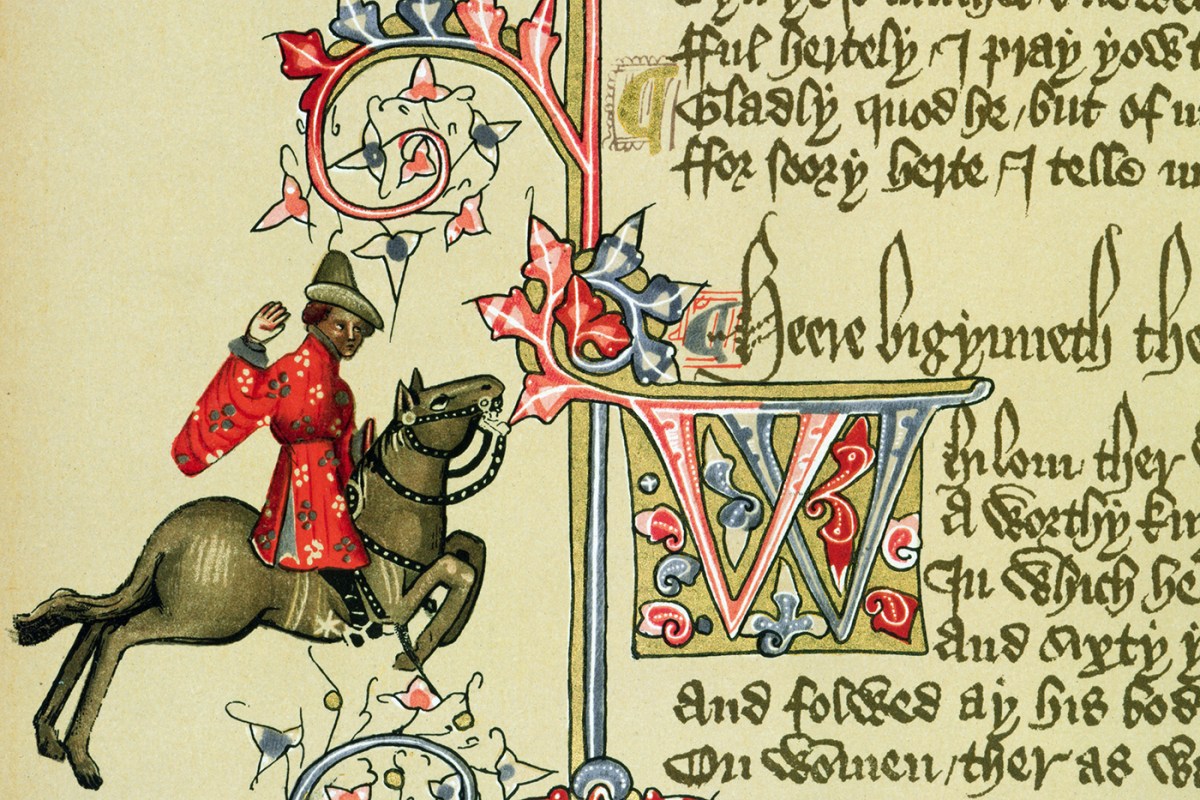 fful hertely / I pray yow
Gladly quod he / but of
ffor soory herte / I telle
Heere bigynneth the
Whilom ther
A worthy kn
In which he
And sixty y
And folwed ay his bod
On women / ther as w